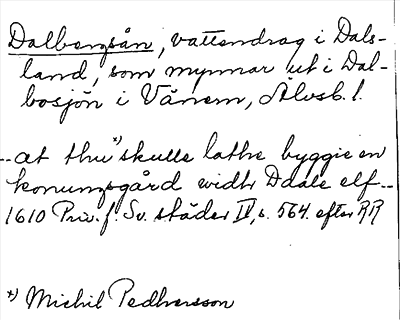 Dalbergsån, vattendrag i Dals-
land, som mynnar ut i Dal-
bosjön i Vänern, Älvsb. l.
-- at thu *) skulle lathe byggie en
konungsgård widh Ddale elf --
1610 Priv. f. Sv. städer II, s. 564. efter RR
*) Michil Pedhersson